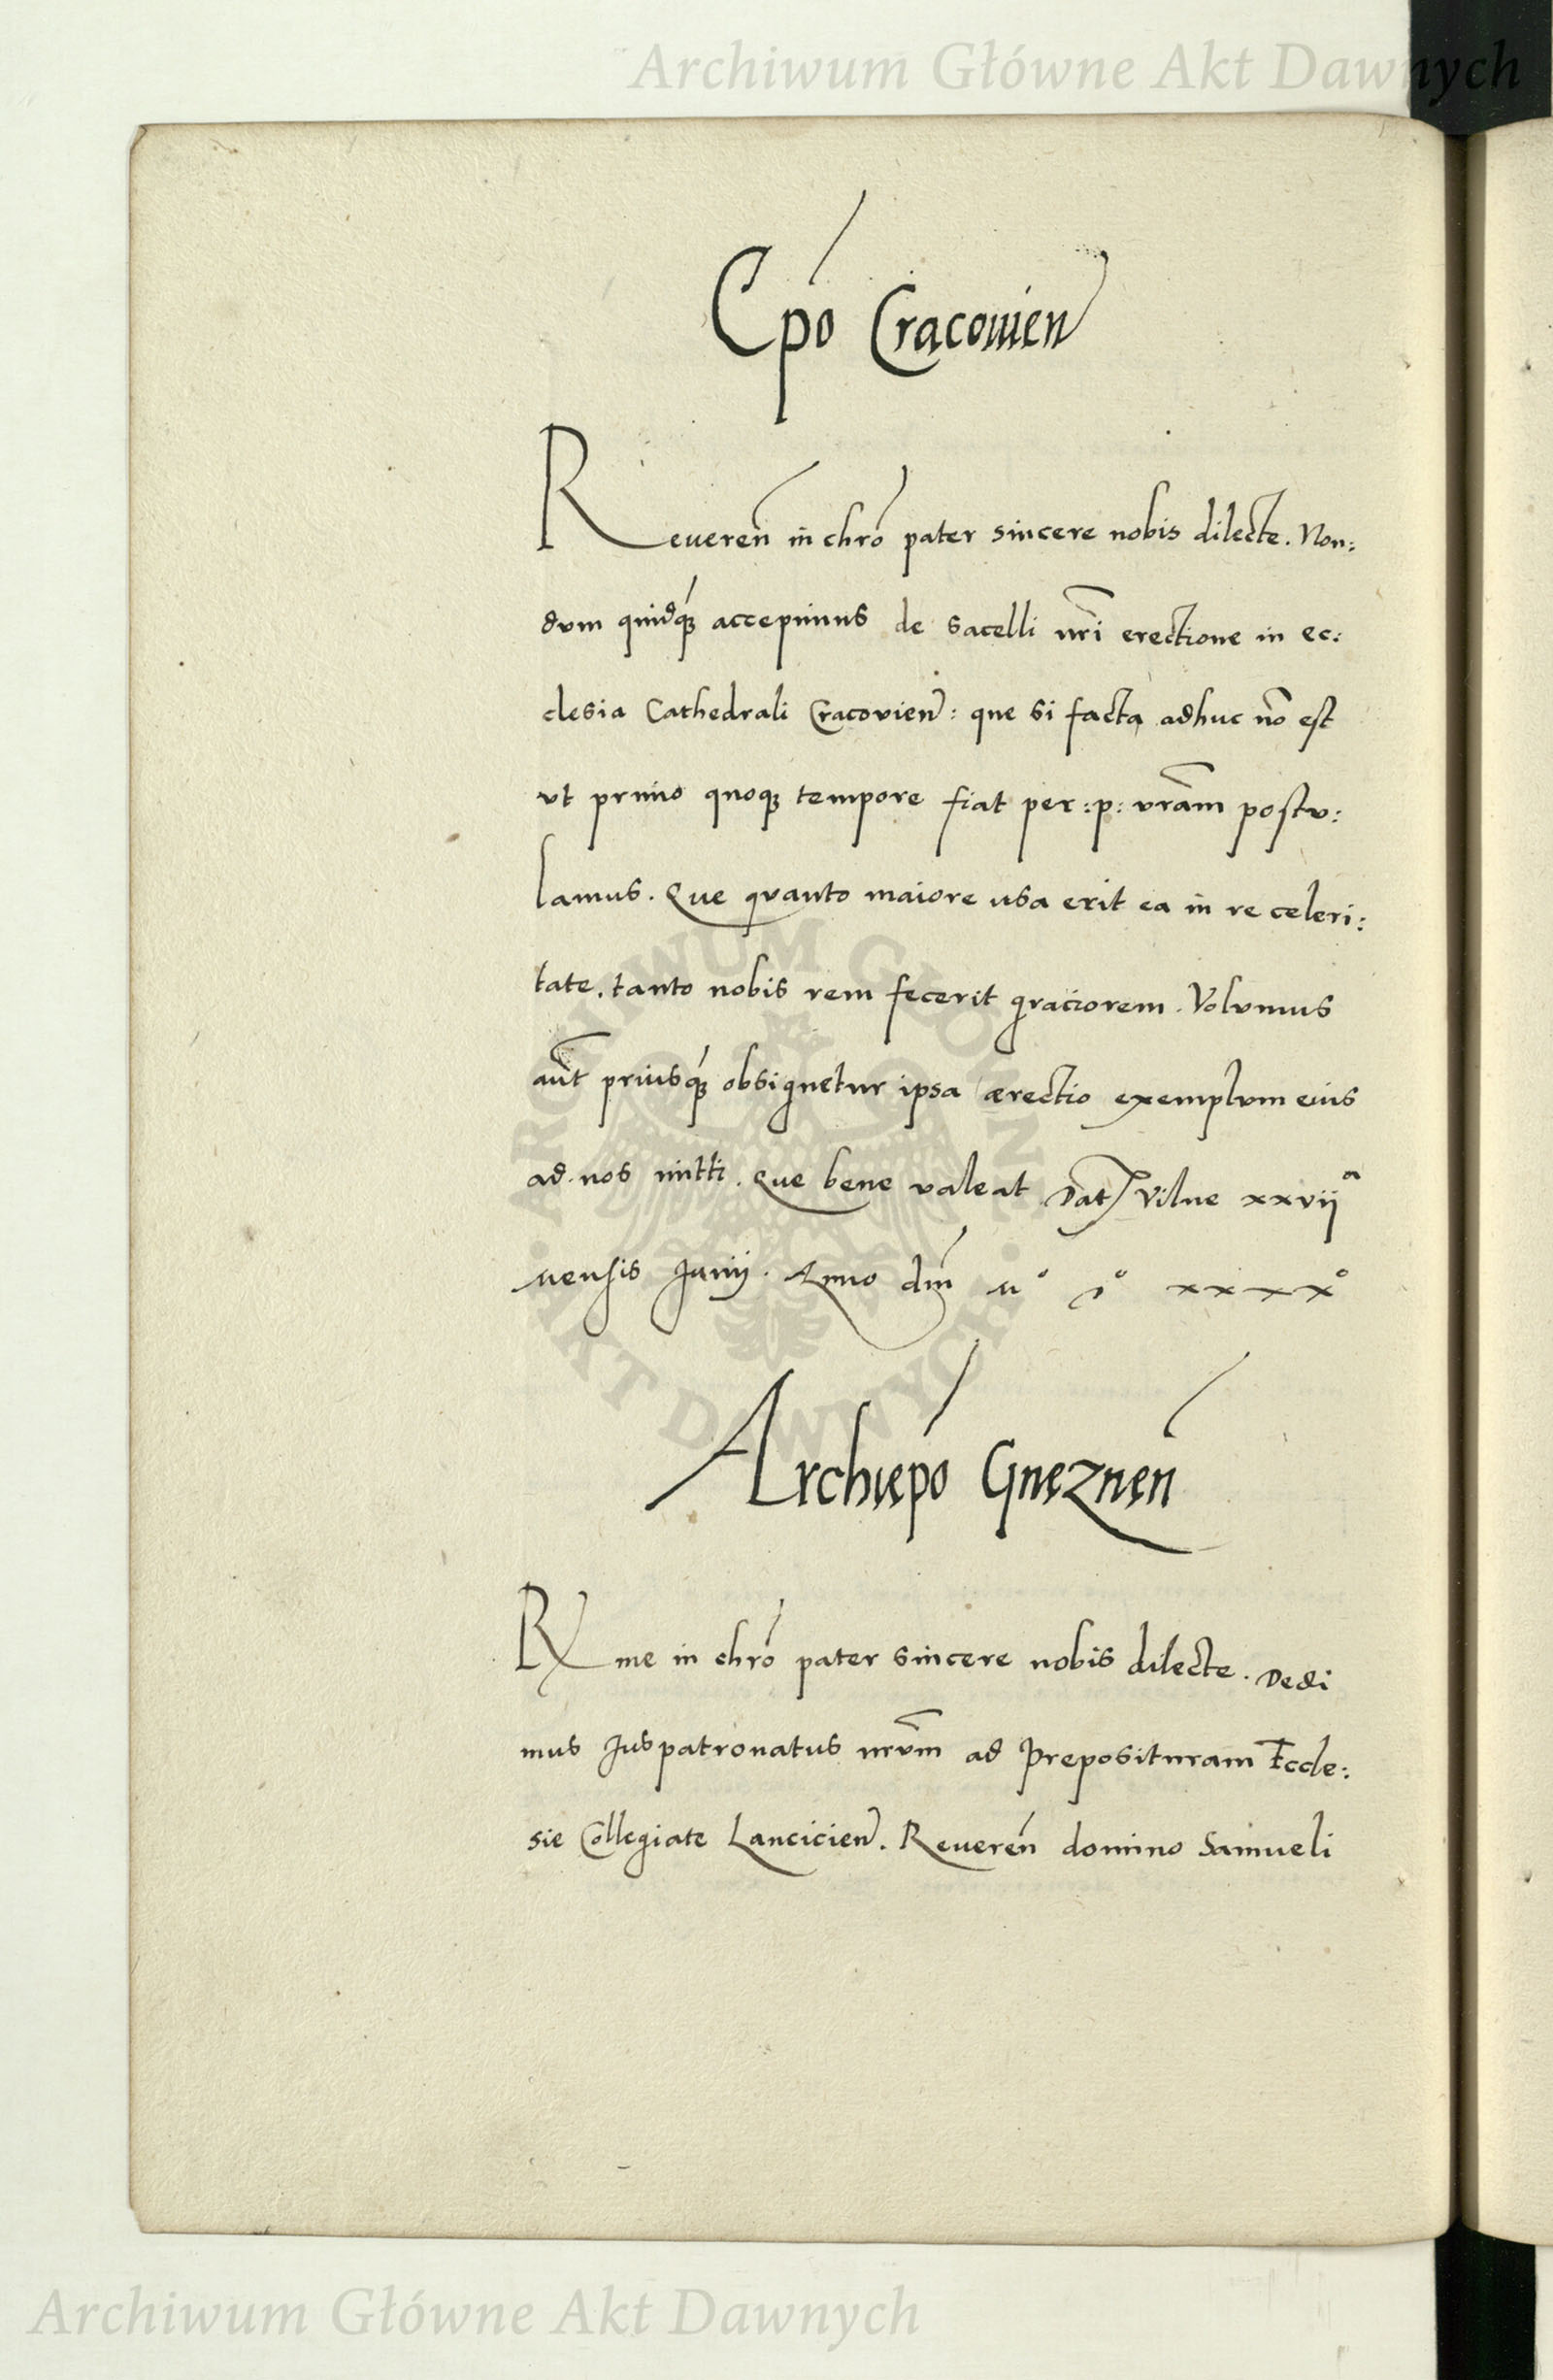 Archiwum Główne Akt Dawnych
Epo Cracovien
Reveren in chro pater sincere nobis dilecte. Non:
dum quidq; accepimus de sacelli nri erectione in ec:
clesia Cathedrali Cracovien: que si facta adhuc no est
ut primo quoq; tempore fiat per :p: vram postu:
lamus. Que quanto maiore usa erit ea in re celeri:
tate, tanto nobis rem fecerit graciorem. Volumus
aut priusq; obsignetur ipsa ærectio exemplum eius
ad nos mitti. Que bene valeat Dat Vilne xxvii a
mensis Junij. Anno dni M° D° xxxx°
Archiepo Gneznen
Rme in chro pater sincere nobis dilecte. Dedi
mus Juspatronatus nrum ad Preposituram Eccle:
sie Collegiate Lancicien. Reveren domino Samueli
ARCHIWUM GŁÓWNE AKT DAWNYCH
Archiwum Główne Akt Dawnych